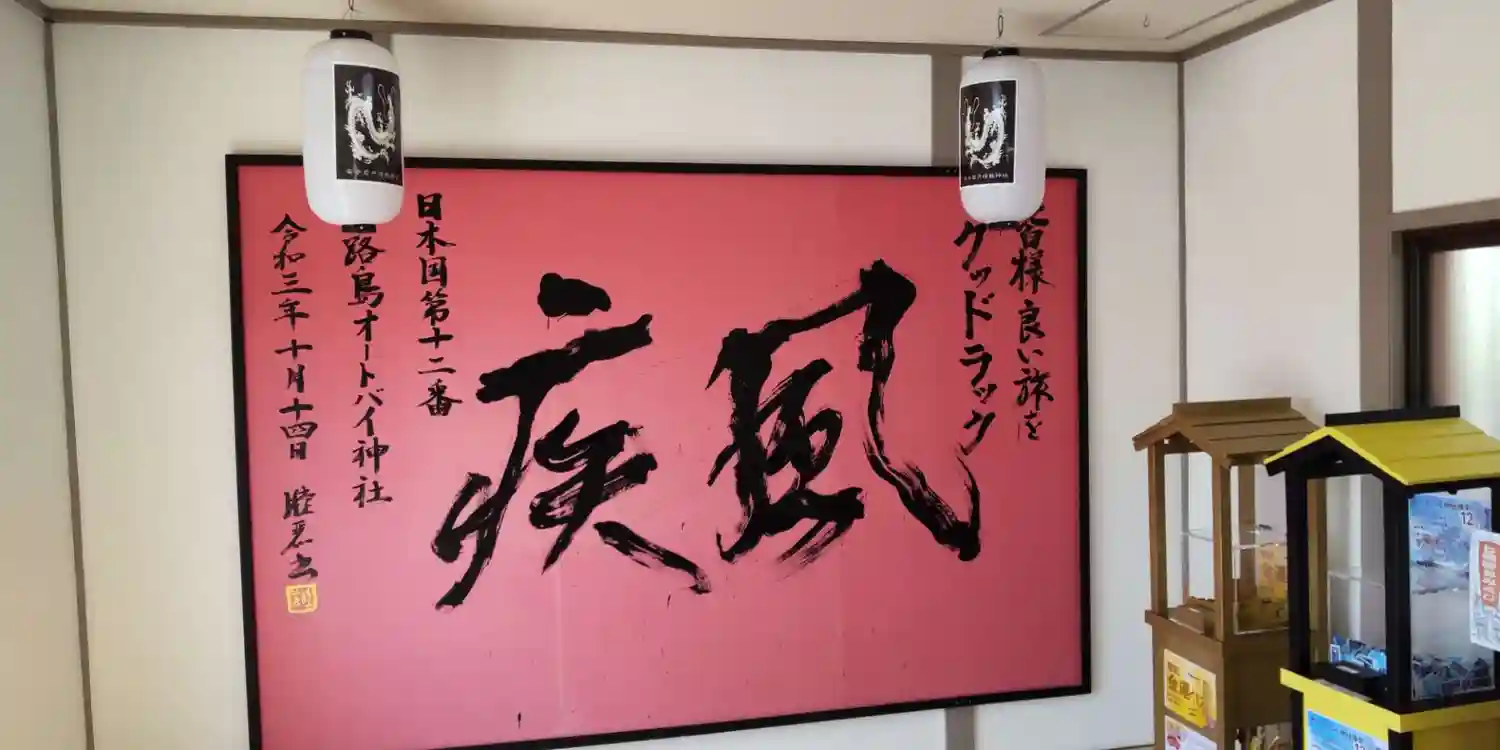 皆様良い旅を
グッドラック
疾風
日本国第十二番
路島オートバイ神社
令和三年十月十四日
12